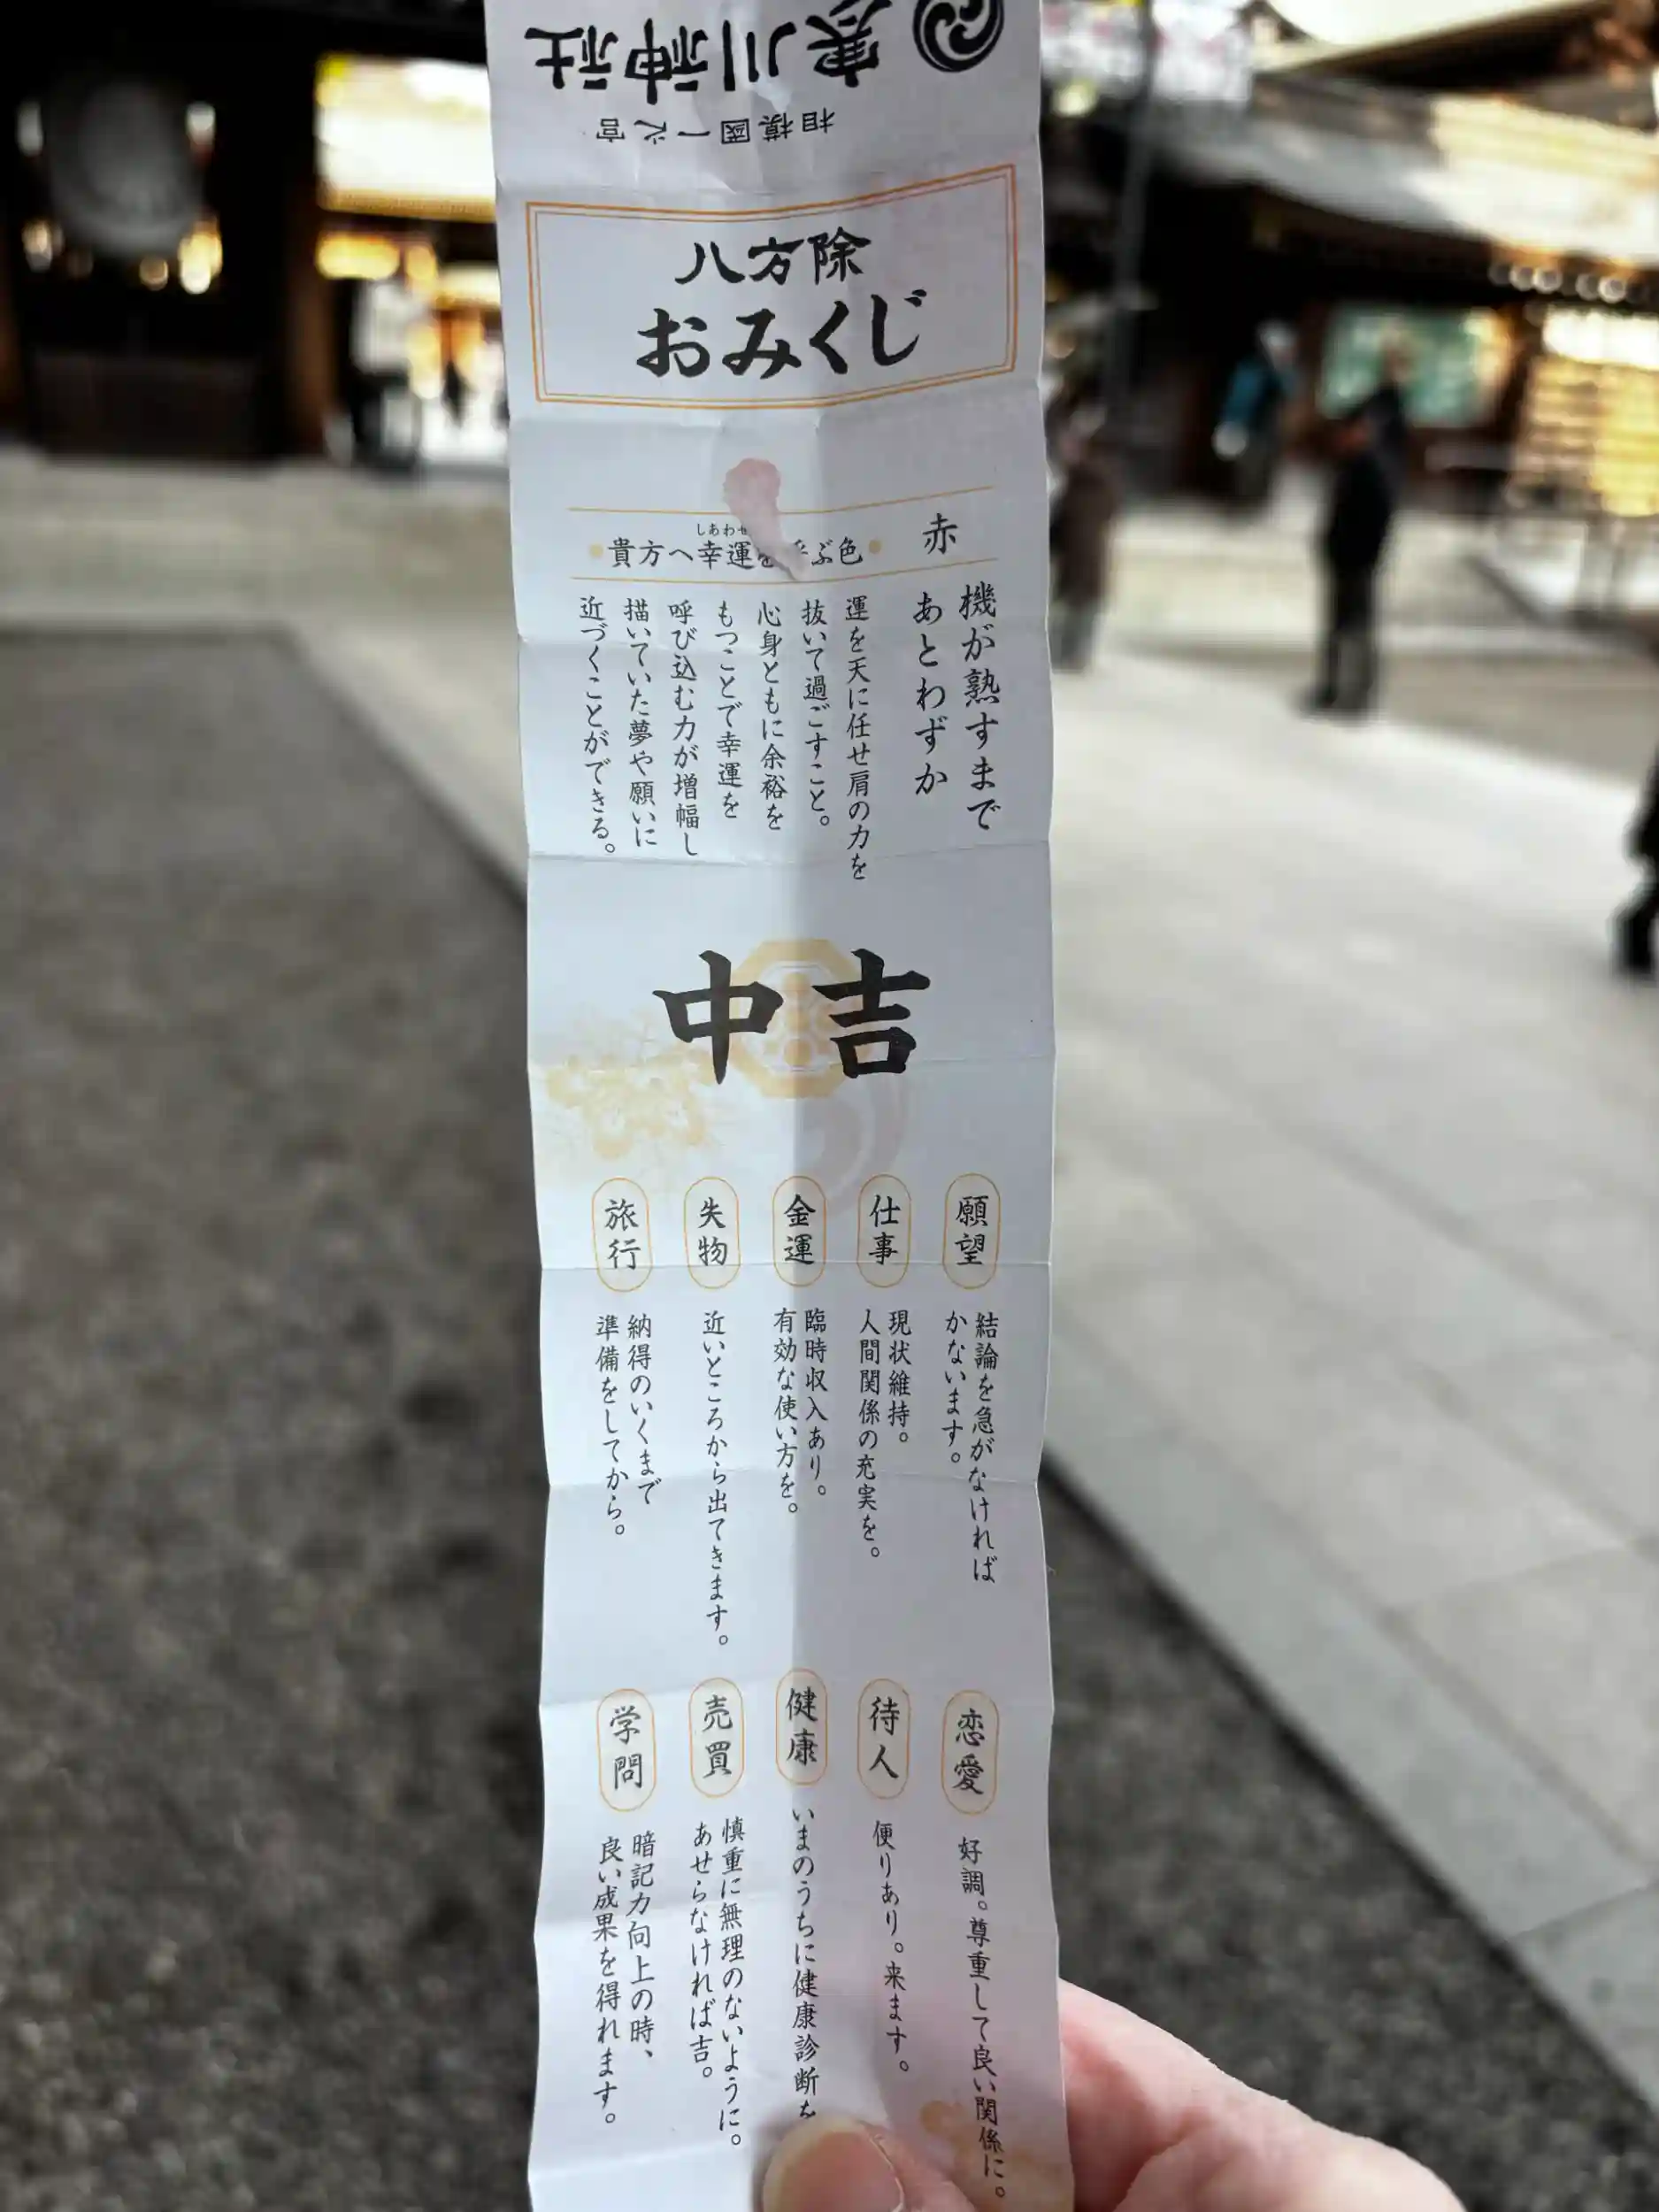 寒川神社
相模國一之宮
八方除
おみくじ
赤
しあわせ
貴方へ幸運を呼ぶ色
機が熟すまで
あとわずか
運を天に任せ肩の力を
抜いて過ごすこと。
心身ともに余裕を
もつことで幸運を
呼び込む力が増幅し
描いていた夢や願いに
近づくことができる。
中吉
願望
結論を急がなければ
かないます。
仕事
現状維持。
人間関係の充実を。
金運
臨時収入あり。
有効な使い方を。
失物
近いところから出てきます。
旅行
納得のいくまで
準備をしてから。
恋愛
好調。尊重して良い関係に。
待人
便りあり。来ます。
健康
いまのうちに健康診断を
売買
慎重に無理のないように。
あせらなければ吉。
学問
暗記力向上の時、
良い成果を得れます。